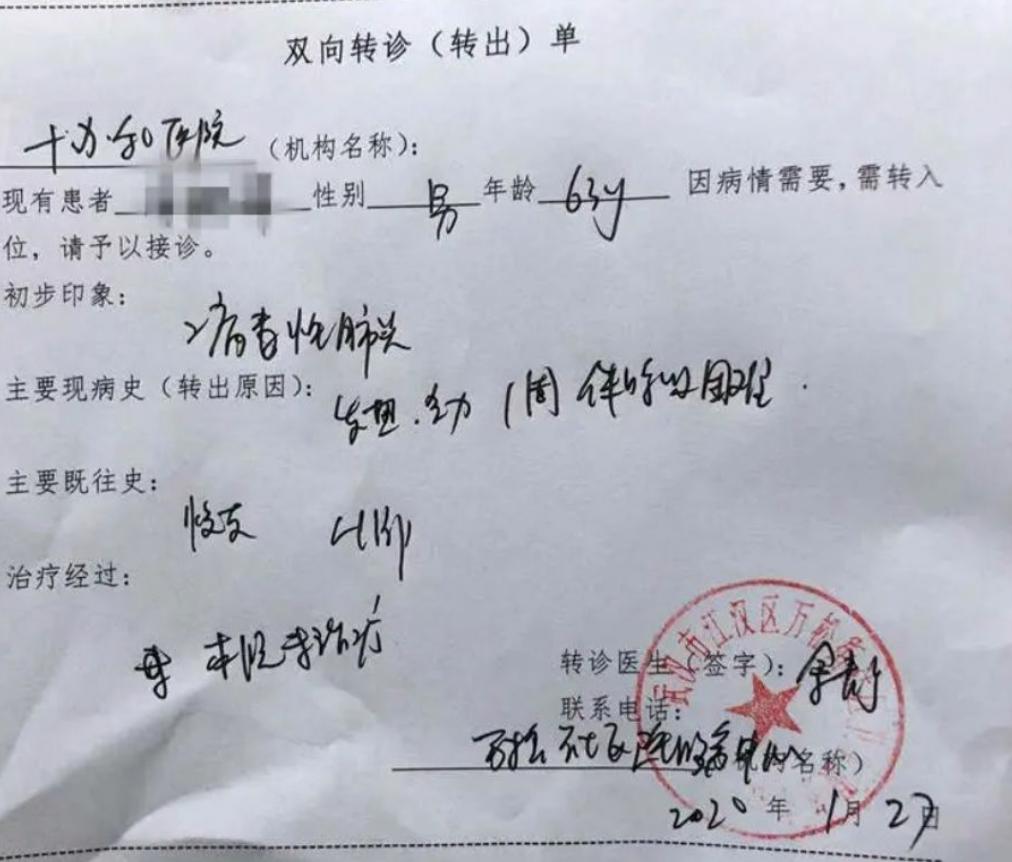 双向转诊（转出）单
医院（机构名称）：
现有患者 性别 男 年龄 63y 因病情需要，需转入
位，请予以接诊。
初步印象：
病毒性肺炎
主要现病史（转出原因）：
发热 1周 伴呼吸困难.
主要既往史：
治疗经过：
本院 治疗
转诊医生（签字）：
联系电话：
万松 社区 （机构名称）
2020年1月27日
汉市江汉区万松